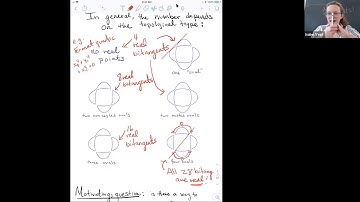 In general, the number depends
on the topological type:
e.g.
Fermat quartic
no real
points
4
real
bitangents
one "oval"
8 real
bitangents
two non-nested ovals
two nested ovals
16
real
bitangents
three ovals
four ovals
All 28 bitang.
are real!
Motivating question: is there a way to